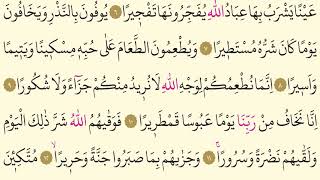 عَيْنًا يَشْرَبُ بِهَا عِبَادُ اللّٰهِ يُفَجِّرُونَهَا تَفْجِيرًا ﴿٦﴾ يُوفُونَ بِالنَّذْرِ وَيَخَافُونَ
يَوْمًا كَانَ شَرُّهُ مُسْتَطِيرًا ﴿٧﴾ وَيُطْعِمُونَ الطَّعَامَ عَلٰى حُبِّهِ مِسْكِينًا وَيَتِيمًا
وَاَسِيرًا ﴿٨﴾ اِنَّمَا نُطْعِمُكُمْ لِوَجْهِ اللّٰهِ لَا نُرِيدُ مِنْكُمْ جَزَٓاءً وَلَا شُكُورًا ﴿٩﴾
اِنَّا نَخَافُ مِنْ رَبِّنَا يَوْمًا عَبُوسًا قَمْطَرِيرًا ﴿١٠﴾ فَوَقٰيهُمُ اللّٰهُ شَرَّ ذٰلِكَ الْيَوْمِ
وَلَقّٰيهُمْ نَضْرَةً وَسُرُورًا ﴿١١﴾ وَجَزٰيهُمْ بِمَا صَبَرُوا جَنَّةً وَحَرِيرًا ﴿١٢﴾ مُتَّكِـٔينَ